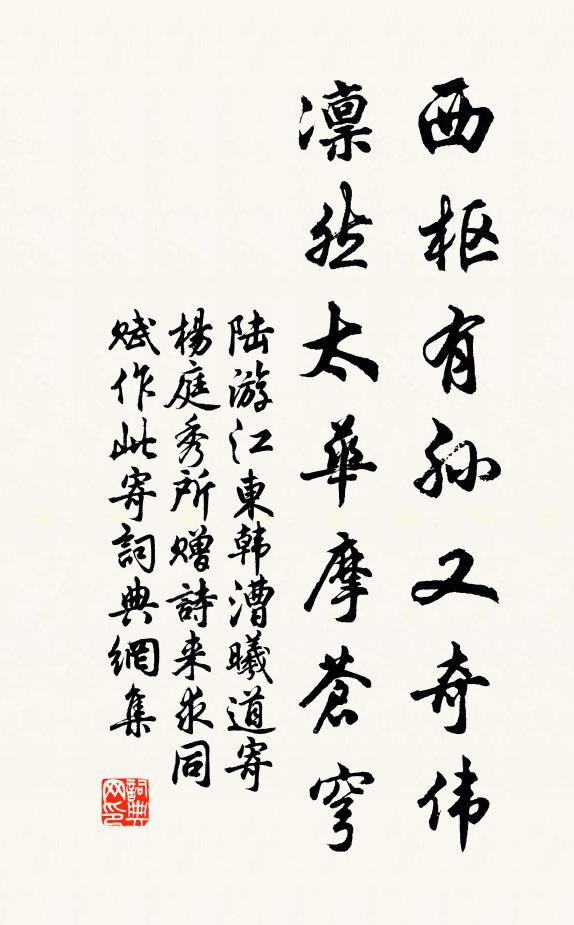 西枢有孙又奇伟
凛然太華摩蒼穹
陆游江東韩漕曦道寄
楊庭秀所赠詩来求同
赋作此寄詞典網集
詞典网印